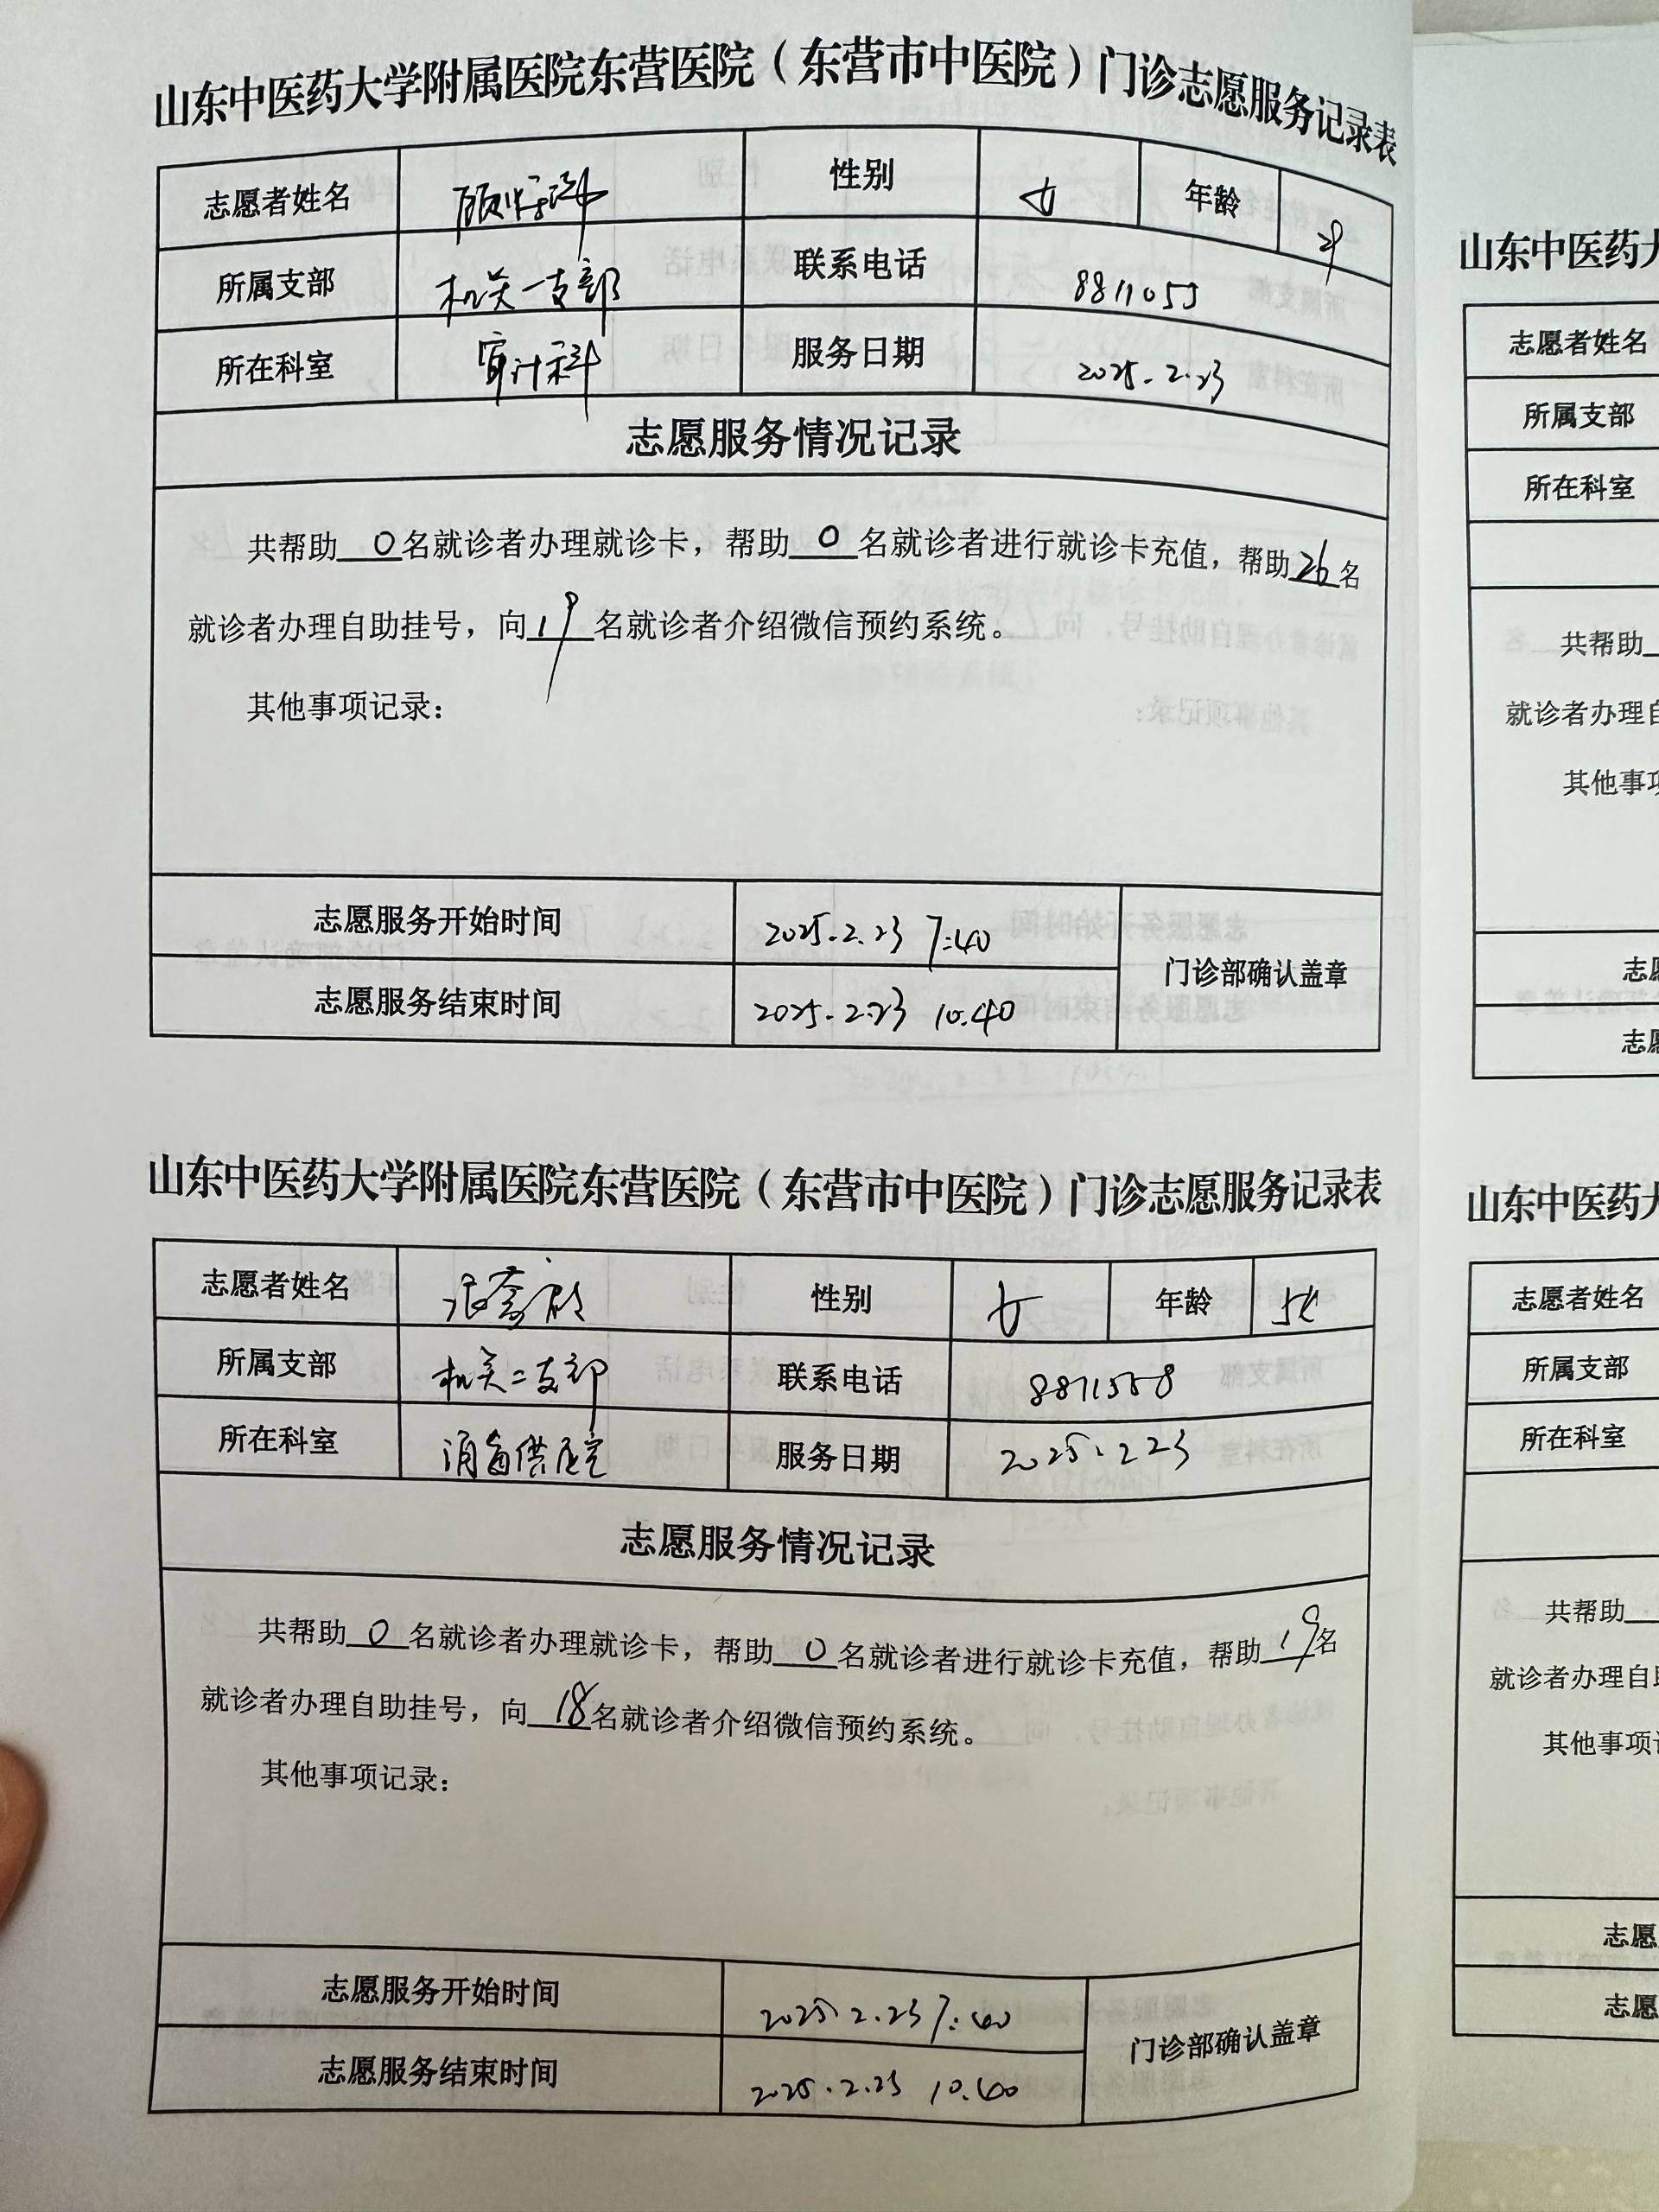 山东中医药大学附属医院东营医院（东营市中医院）门诊志愿服务记录表
志愿者姓名 性别 女 年龄
所属支部 机关一支部 联系电话 8811055
所在科室 审计科 服务日期 2025.2.23
志愿服务情况记录
共帮助0名就诊者办理就诊卡，帮助0名就诊者进行就诊卡充值，帮助26名
就诊者办理自助挂号，向19名就诊者介绍微信预约系统。
其他事项记录：
志愿服务开始时间 2025.2.23 7:40
门诊部确认盖章
志愿服务结束时间 2025.2.23 10:40
山东中医药大学附属医院东营医院（东营市中医院）门诊志愿服务记录表
志愿者姓名 性别 女 年龄
所属支部 机关二支部 联系电话 8811558
所在科室 消毒供应室 服务日期 2025.2.23
志愿服务情况记录
共帮助0名就诊者办理就诊卡，帮助0名就诊者进行就诊卡充值，帮助19名
就诊者办理自助挂号，向18名就诊者介绍微信预约系统。
其他事项记录：
志愿服务开始时间 2025.2.23 7:40
门诊部确认盖章
志愿服务结束时间 2025.2.23 10:40
山东中医药大
志愿者姓名
所属支部
所在科室
共帮助
就诊者办理自
其他事项
志愿
志愿
山东中医药大
志愿者姓名
所属支部
所在科室
共帮助
就诊者办理自
其他事项
志愿
志愿